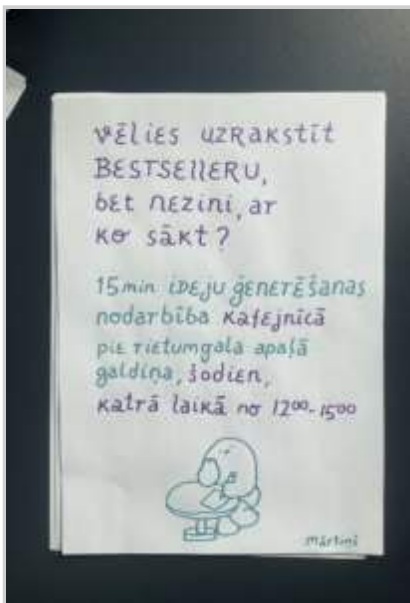 VĒLIES UZRAKSTĪT
BESTSELLERU,
bET NEZINI, AR
KO SĀKT?
15min iDEJU ĢENERĒŠANAS
nodarbība KAFEJNĪCĀ
PIE RIETUMGALA APAĻĀ
GALDIŅA, ŠODIEN,
KATRĀ LAIKĀ no 12⁰⁰-15⁰⁰
Mārtiņš